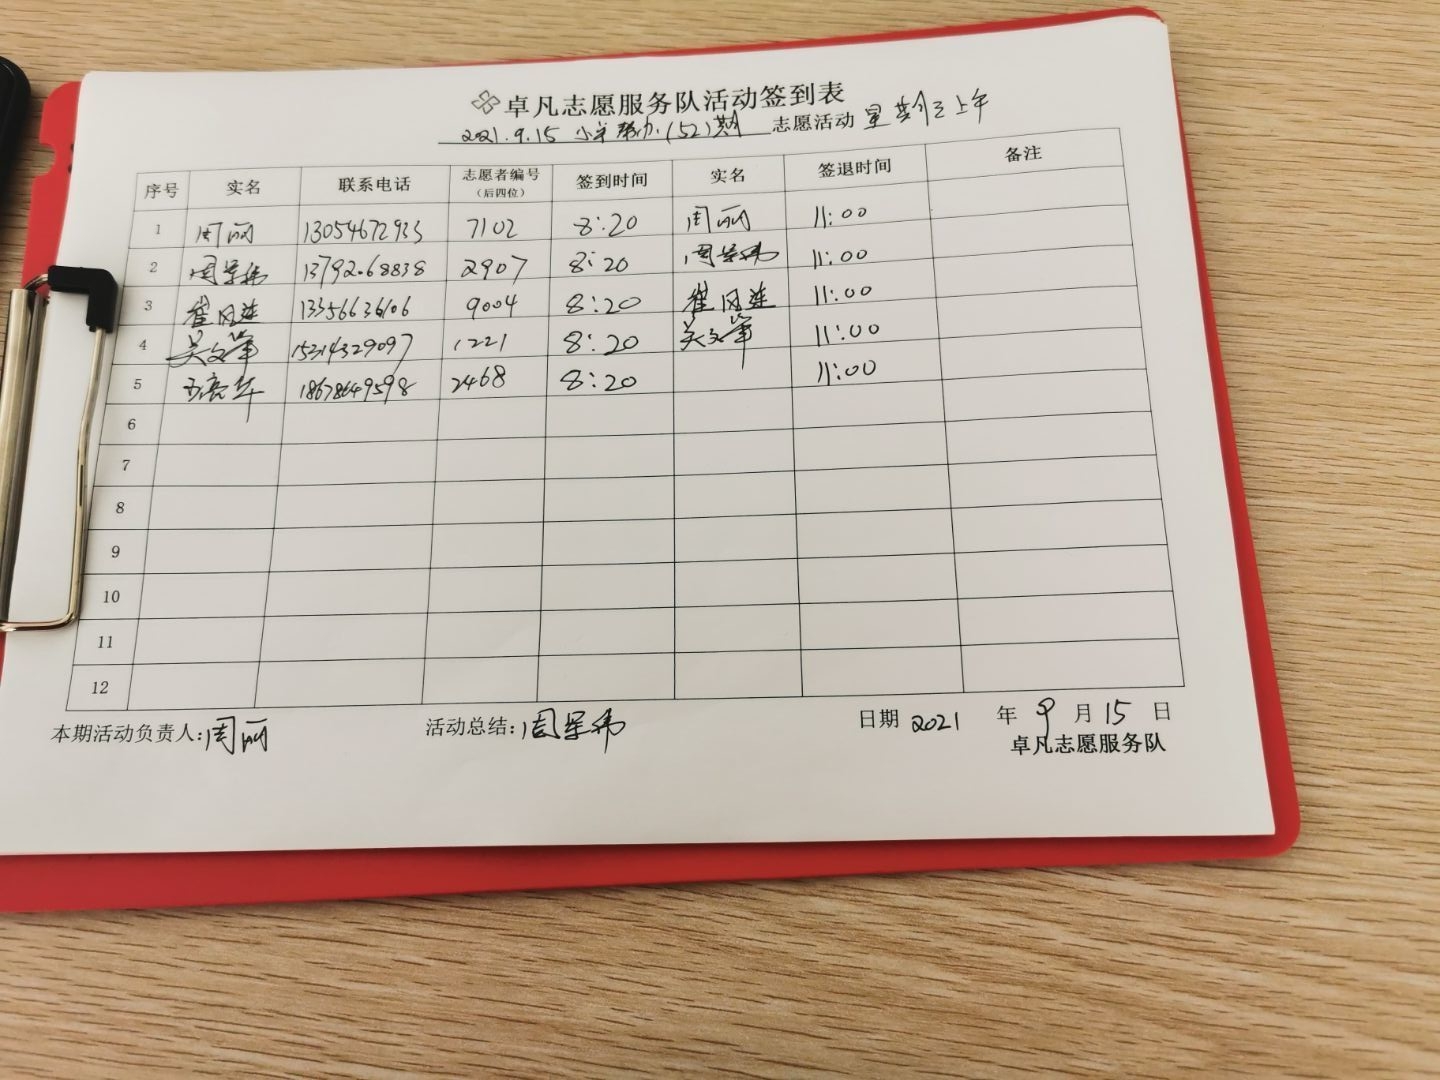 卓凡志愿服务队活动签到表
2021.9.15 小羊帮办(52)期 志愿活动 星期三上午
序号 实名 联系电话 志愿者编号(后四位) 签到时间 实名 签退时间 备注
1 周丽 13054672933 7102 8:20 周丽 11:00
2 13792068838 2907 8:20 11:00
3 崔风莲 13356636106 9004 8:20 崔风莲 11:00
4 吴文 15314329097 1221 8:20 吴文 11:00
5 18678649598 2468 8:20 11:00
6
7
8
9
10
11
12
本期活动负责人:周丽 活动总结: 日期 2021 年 9 月 15 日
卓凡志愿服务队